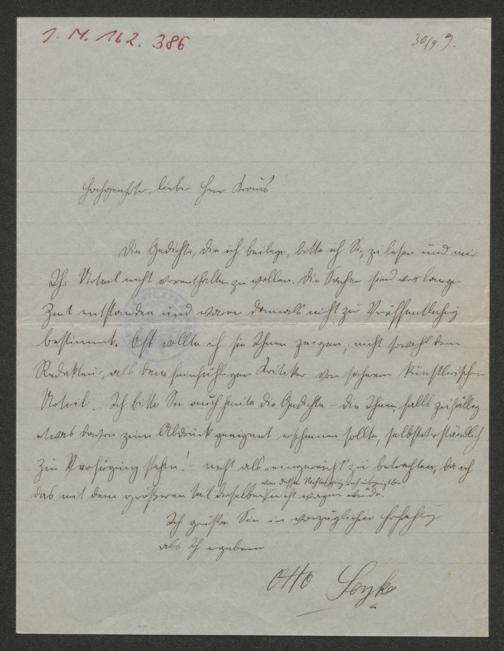 I. N. 162.386
30/9 9.
Hochgeehrter, lieber Herr Kraus
Die Gedichte, die ich beilege, bitte ich Sie, zu lesen und mir
Ihr Urteil nicht vorenthalten zu wollen. Die Sachen sind vor langer
Zeit entstanden und waren damals nicht zur Veröffentlichung
bestimmt. Erst wollte ich sie Ihnen zeigen, nicht sowohl dem
Redakteur, als dem feinfühligen Kritiker von sicherem künstlerischen
Urteil. Ich bitte Sie auch heute die Gedichte – die Ihnen, falls zufällig
etwas davon zum Abdruck geeignet erscheinen sollte, selbstverständlich
zur Verfügung stehen! – nicht als „eingereicht" zu betrachten, da ich
das mit dem größeren Teil derselben nicht wagen würde.
Ich grüße Sie in vorzüglicher Hochachtung
als Ihr ergebener
Otto Soyka